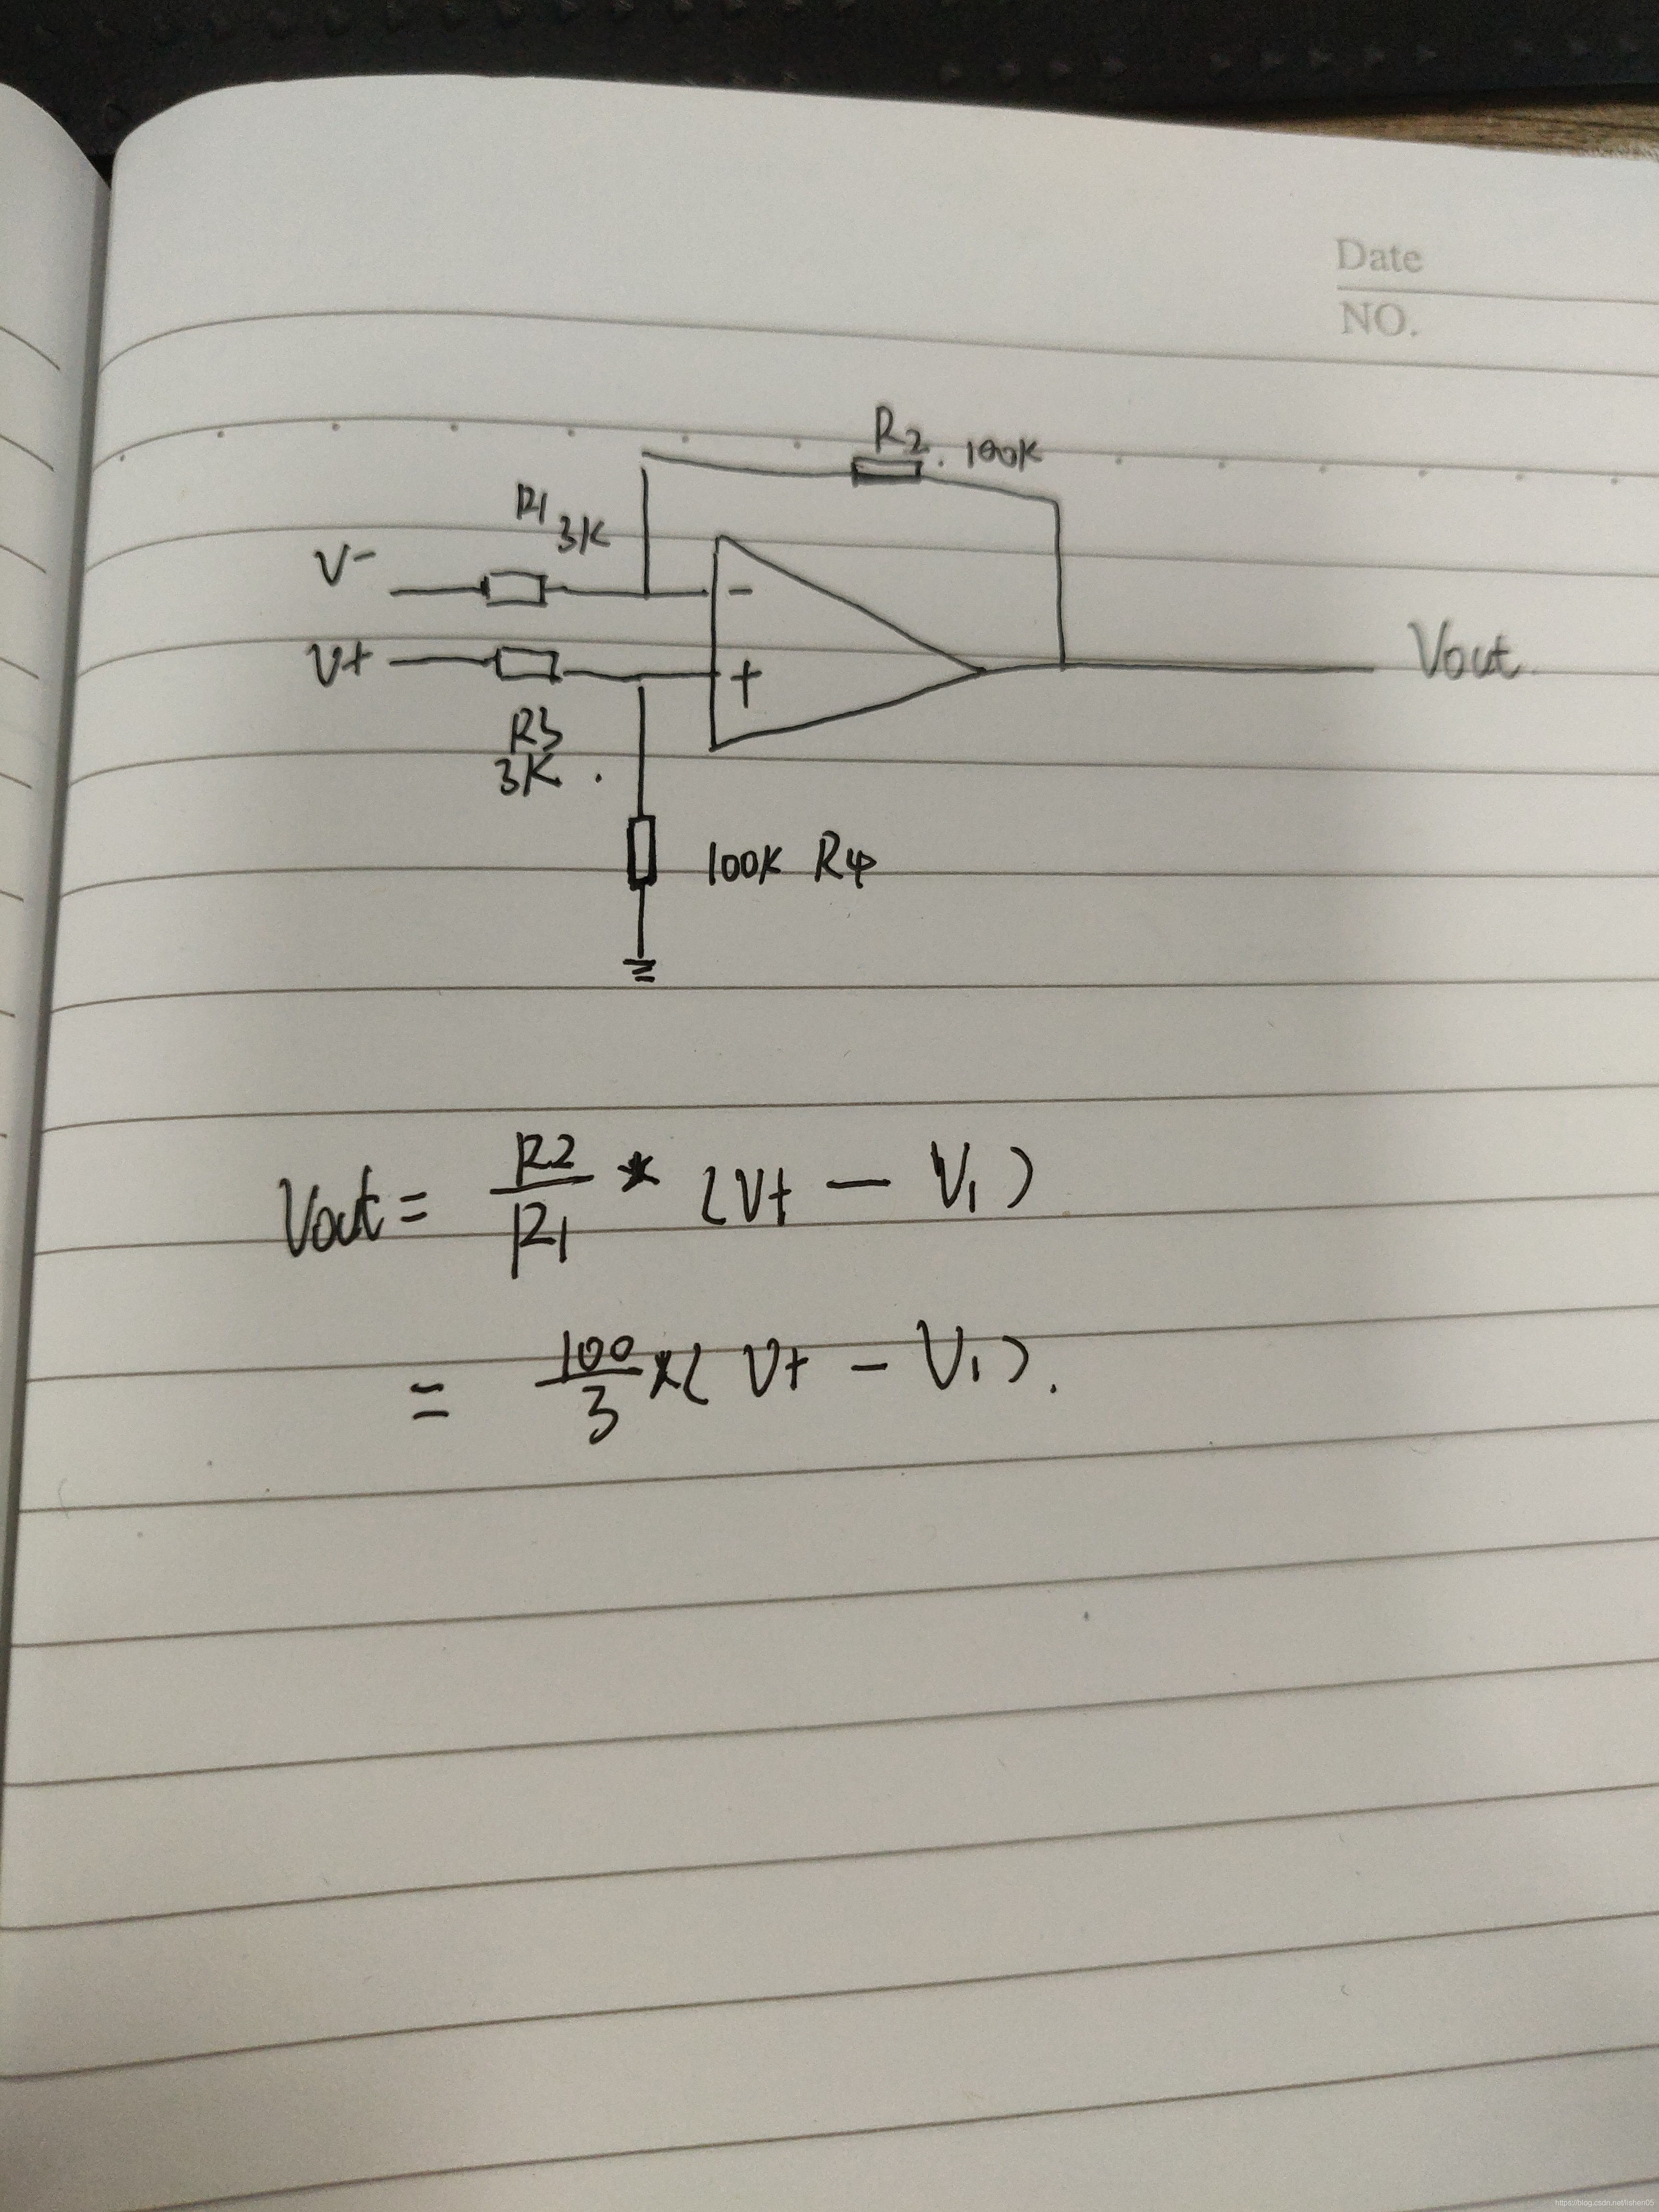 Date
NO.
R2. 100K
R1 3K
V-
-
V+
+
Vout
R3
3K.
100K R4
Vout = R2/R1 * (V+ - V1)
= 100/3 *( V+ - V1).
https://blog.csdn.net/lishen05